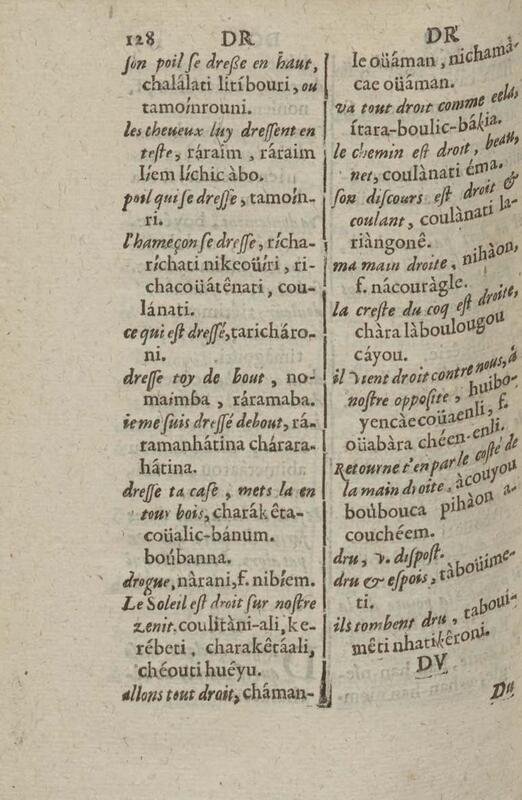 128 DR
son poil se dreße en haut,
chalálati litíbouri, ou
tamoínrouni.
les cheueux luy dressent en
teste, ráraim, ráraim
líem líchic àbo.
poil qui se dresse, tamoín-
ri.
l'hameçon se dresse, rícha-
ríchati nikeoüíri, ri-
chacoüátênati, cou-
lánati.
ce qui est dressé, taricháro-
ni.
dresse toy de bout, no-
maímba, ráramaba.
ie me suis dressé debout, rá-
ramanhátina chárara-
hátina.
dresse ta case, mets la en
tour bois, charákêta-
coüalic-bánum.
boúbanna.
drogue, nàrani, f. nibíem.
Le Soleil est droit sur nostre
zenit. coulitàni-ali, ke-
rébeti, charakêtáali,
chéouti huêyu.
allons tout droit, cháman-
DR
le oüáman, nichamà-
cae oüáman.
va tout droit comme cela,
ítara-boulic-bákia.
le chemin est droit, beau,
net, coulànati éma.
son discours est droit &
coulant, coulànati la-
riàngonê.
ma main droite, nihàon,
f. nácouràgle.
la creste du coq est droite,
chàra làboulougou
cáyou.
il vient droit contre nous, à
nostre opposite, huibo-
yencàecoüaenli, f.
oüabàra chéen-enli.
Retourne t'en par le costé de
la main droite, àcouyou
boúbouca pihàon a-
couchéem.
dru, v. dispost.
dru & espois, tàboüime-
ti.
ils tombent dru, taboui-
mêti nhatikêroni.
DV
Du